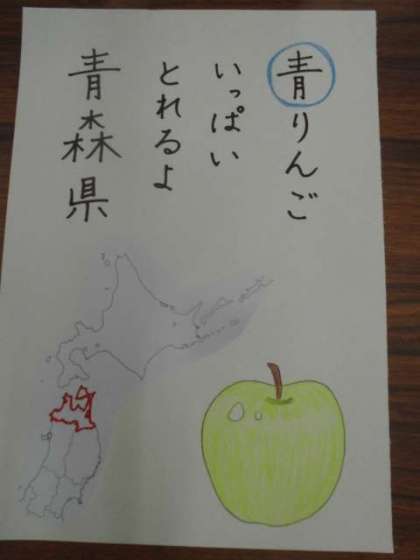 青りんご
いっぱい
とれるよ
青森県